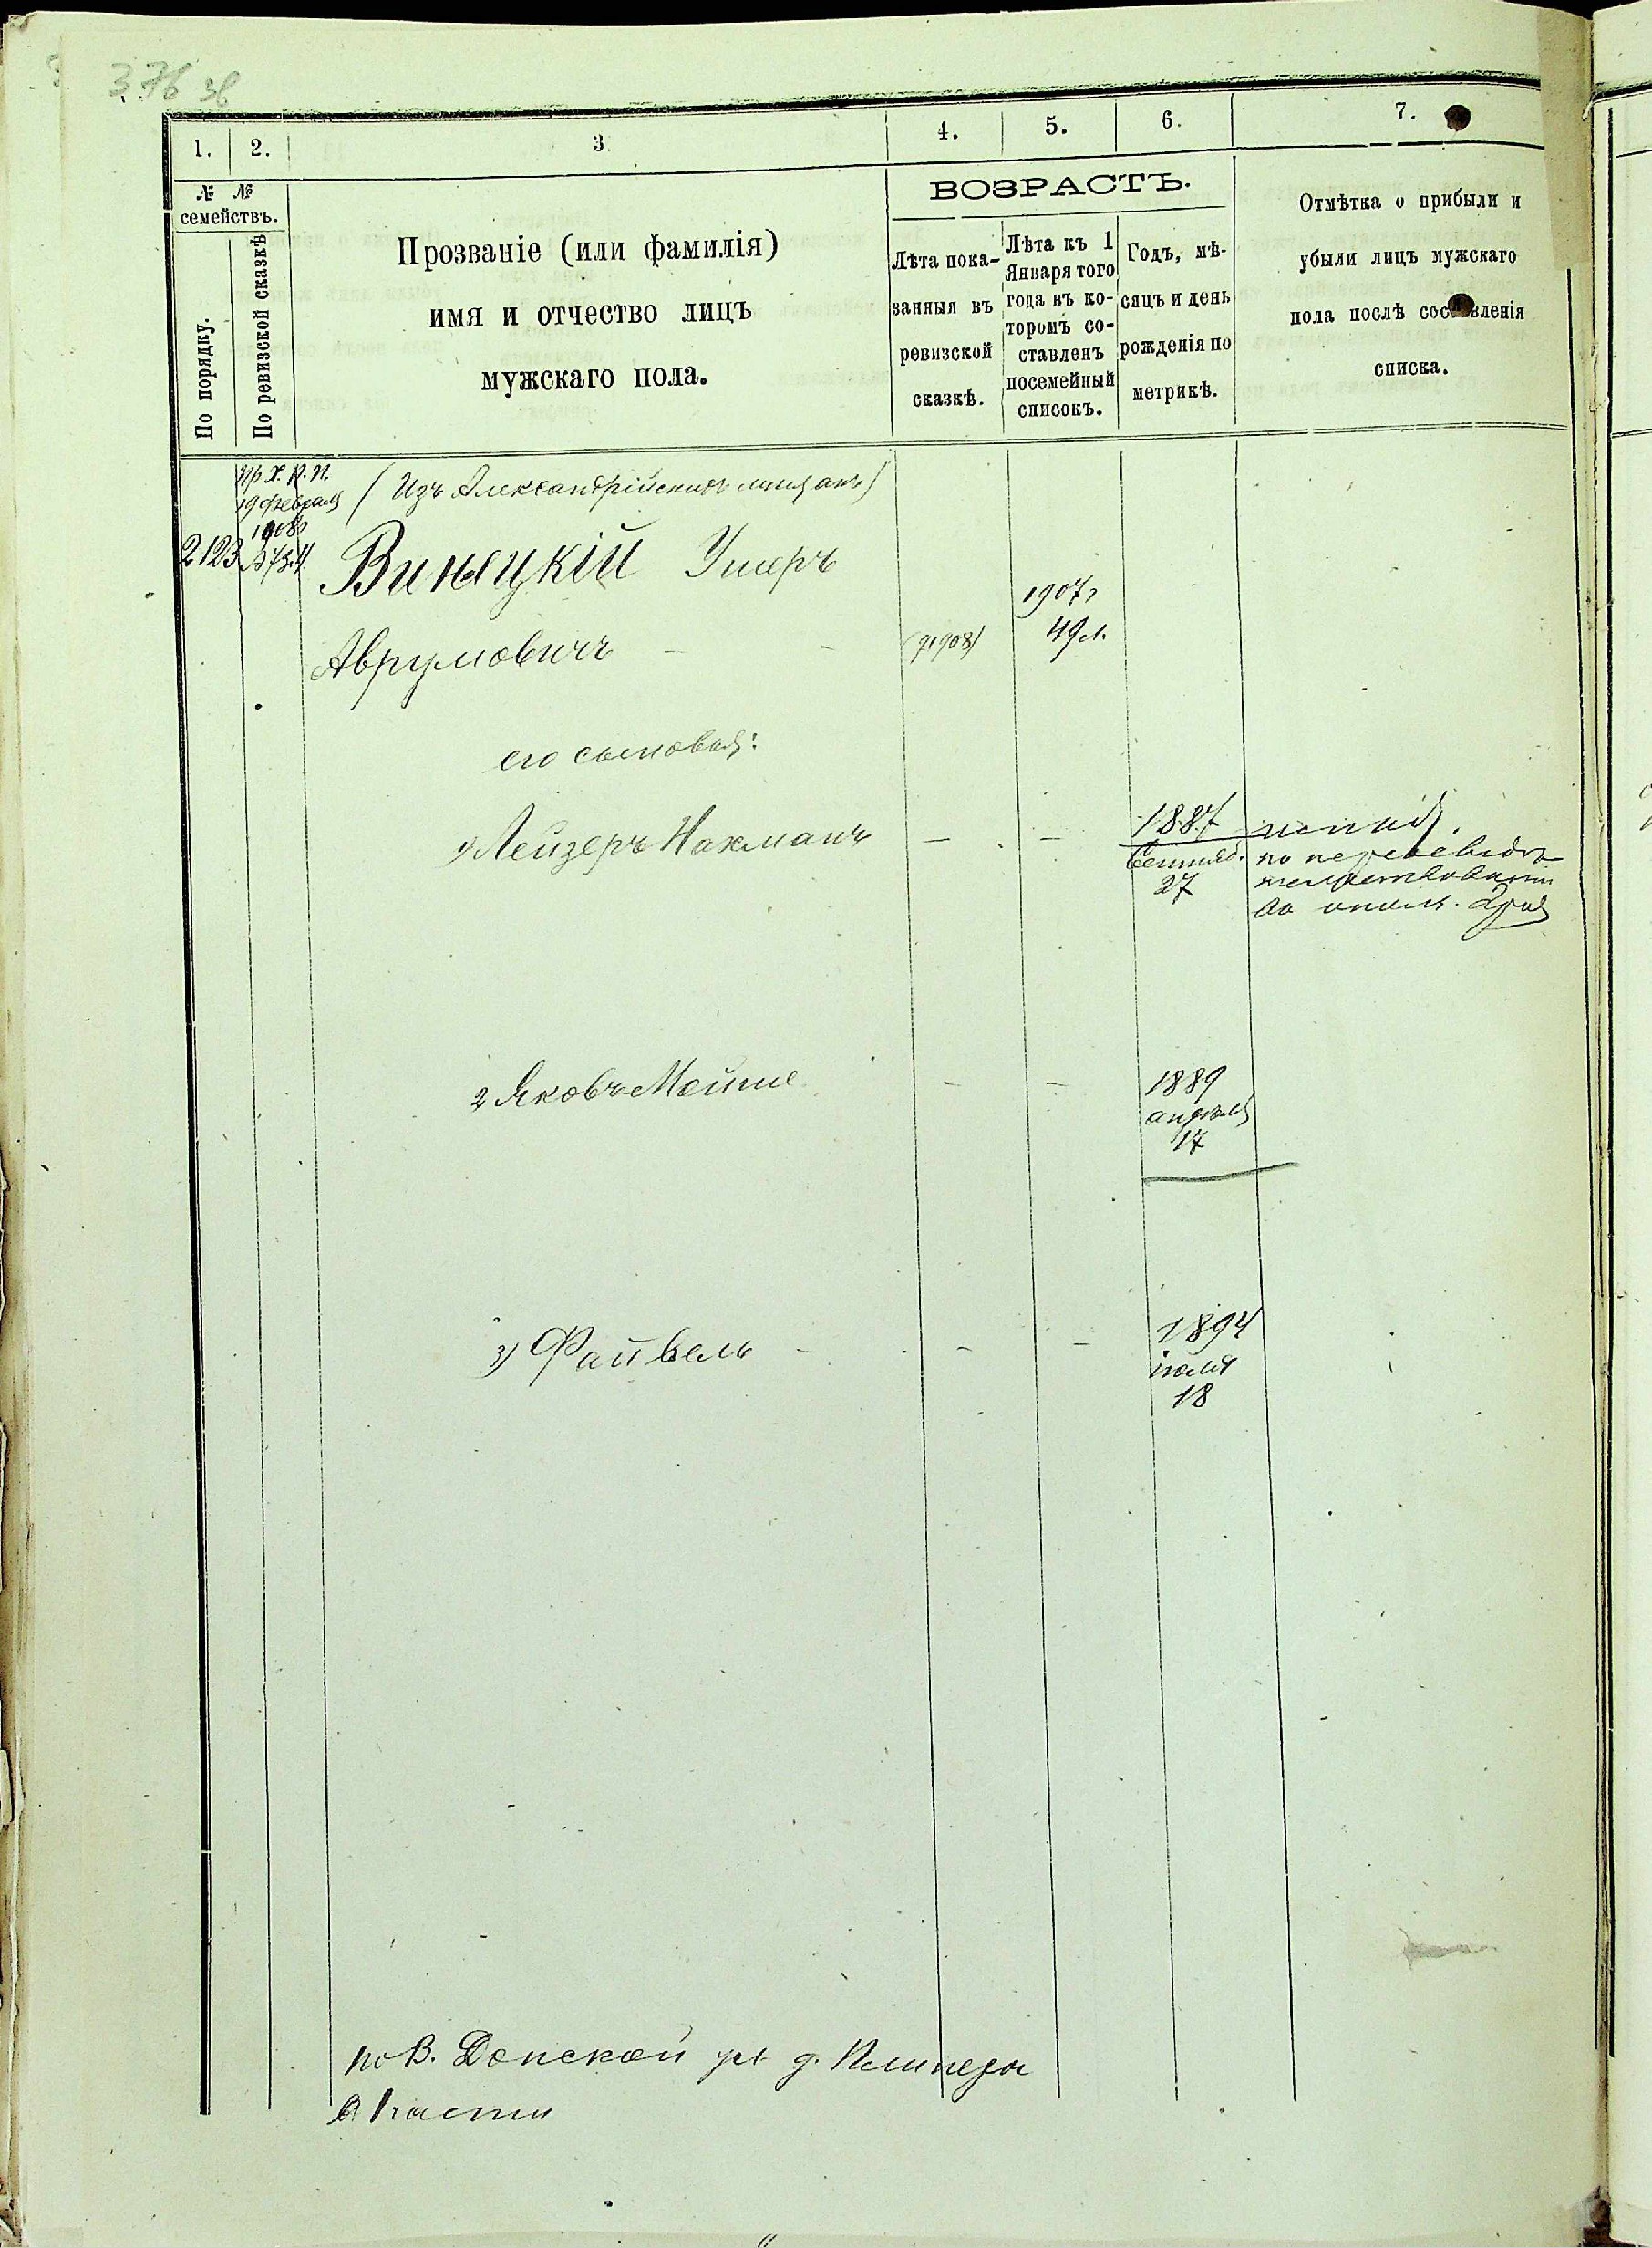 376 зв
1. 2. 3 4. 5. 6. 7.
№ №
семействъ.
По порядку.
По ревизской сказкѣ
Прозваніе (или фамилія)
имя и отчество лицъ
мужскаго пола.
ВОЗРАСТЪ.
Лѣта пока-
занныя въ
ревизской
сказкѣ.
Лѣта къ 1
Января того
года въ ко-
торомъ со-
ставленъ
посемейный
списокъ.
Годъ, мѣ-
сяцъ и день
рожденія по
метрикѣ.
Отмѣтка о прибыли и
убыли лицъ мужскаго
пола послѣ составленія
списка.
пр Х. К. П.
19 февраля
1908
(Изъ Александрійскихъ мѣщанъ)
2123
Винницкій Ушеръ
1907г
Аврумовичъ (1908) 49 л.
его сыновья:
1) Лейзеръ Нахманъ — — 1887
Сентяб.
27
2 Яковъ Мойше - - 1889
апрѣля
17
3) Файвель - - - 1894
іюля
18
по В. Донской ул д.
части